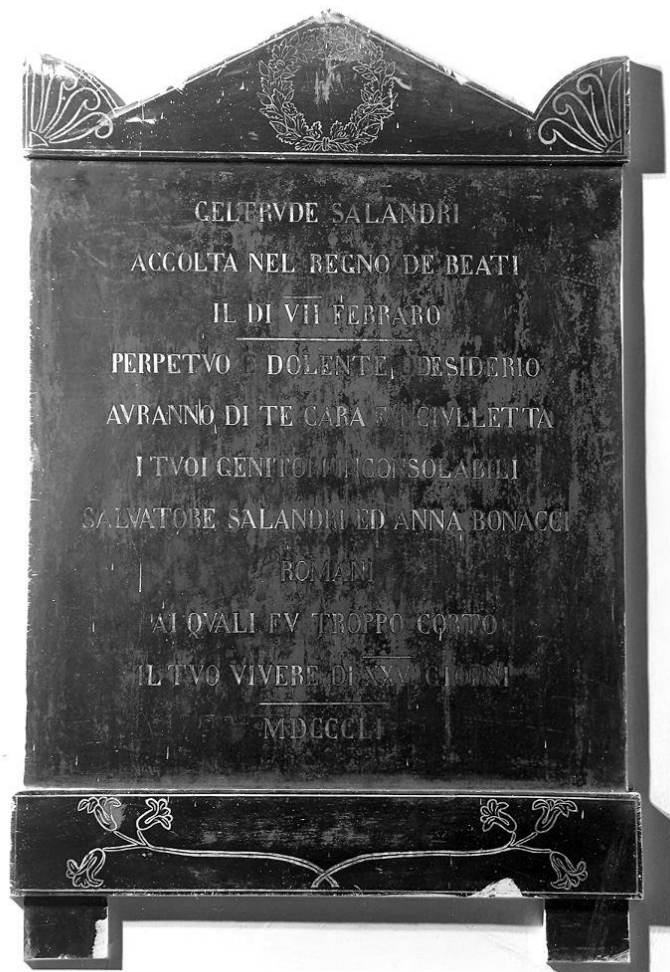 GELTRVDE SALANDRI
ACCOLTA NEL REGNO DE BEATI
IL DI VII FEBRARO
PERPETVO E DOLENTE DESIDERIO
AVRANNO DI TE CARA FANCIVLLETTA
I TVOI GENITORI INCONSOLABILI
SALVATORE SALANDRI ED ANNA BONACCI
ROMANI
AI QVALI FV TROPPO CORTO
IL TVO VIVERE DI GIORNI
MDCCCLI